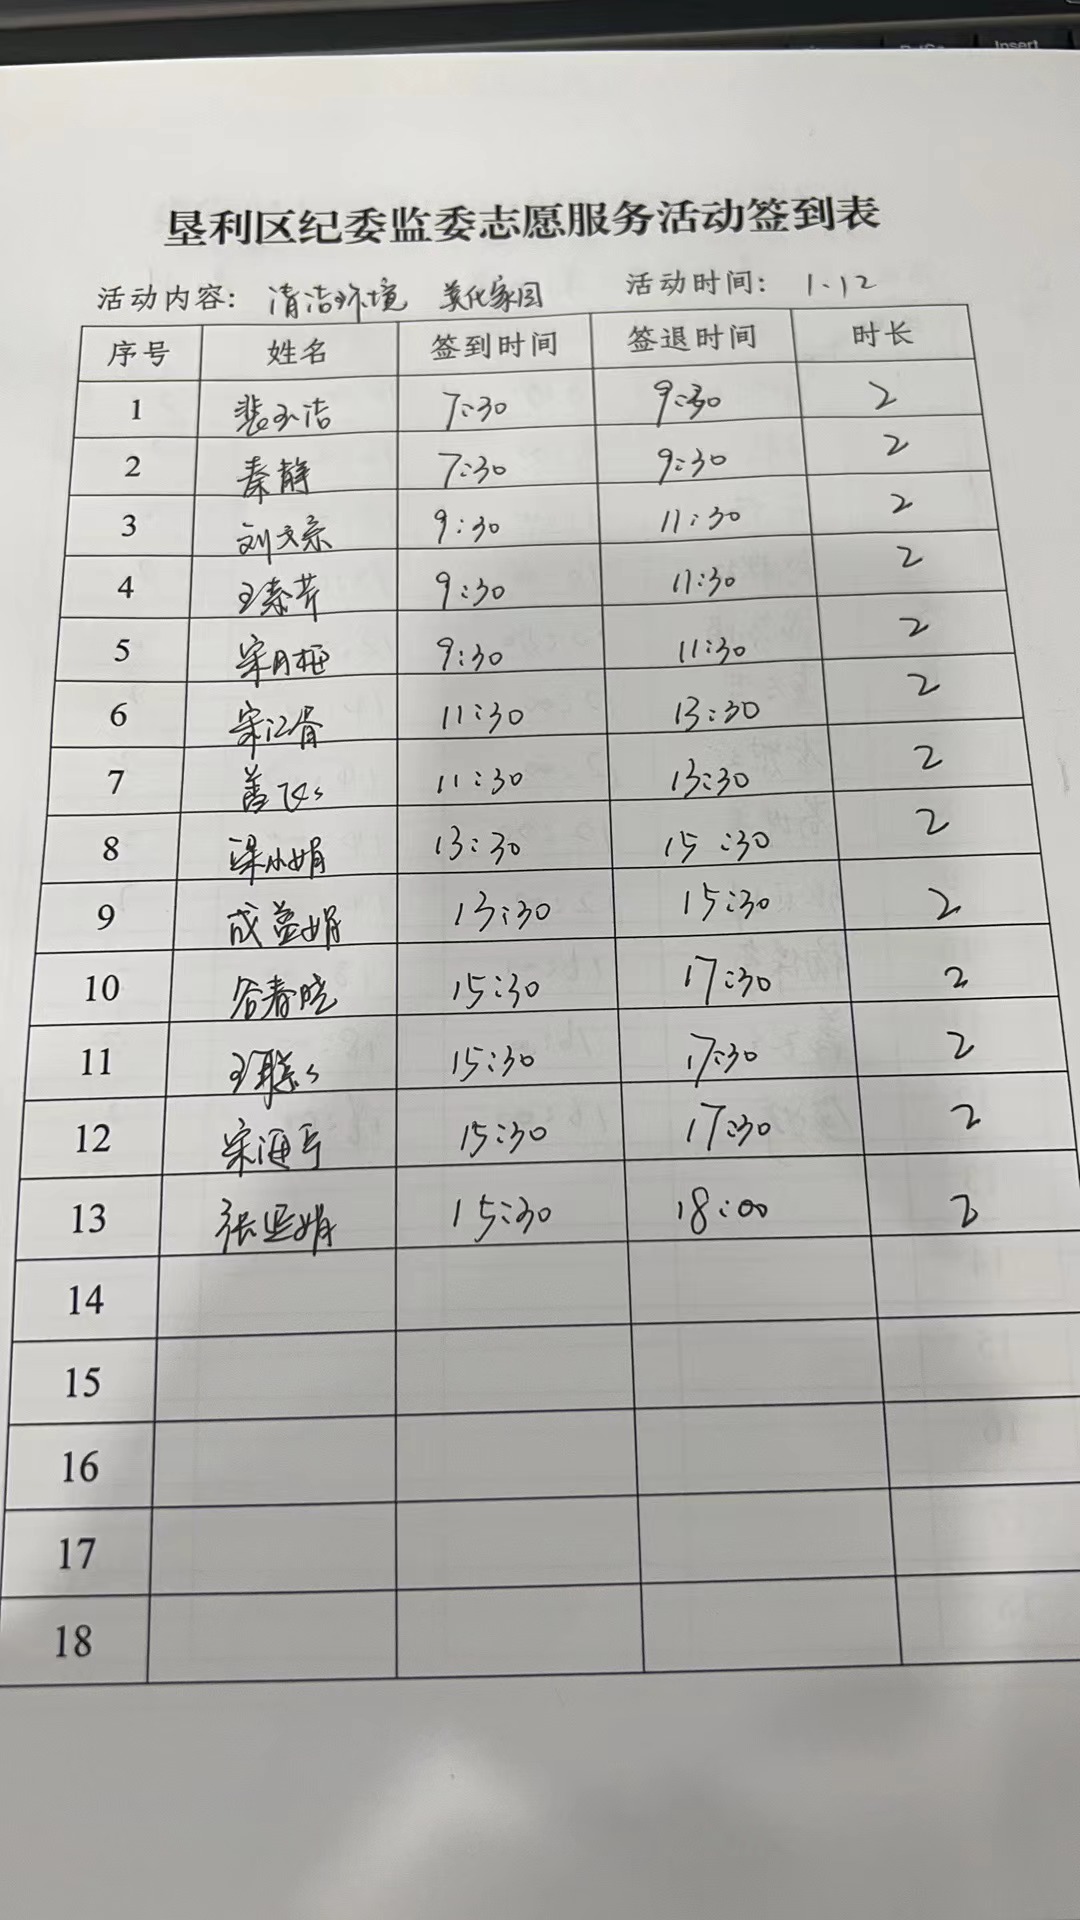 Insert
垦利区纪委监委志愿服务活动签到表
活动内容: 清洁环境 美化家园 活动时间: 1.12
序号 姓名 签到时间 签退时间 时长
1 裴玉洁 7:30 9:30 2
2 秦静 7:30 9:30 2
3 刘文宗 9:30 11:30 2
4 王素芹 9:30 11:30 2
5 宋月桓 9:30 11:30 2
6 宋江 11:30 13:30 2
7 11:30 13:30 2
8 梁小娟 13:30 15:30 2
9 成益娟 13:30 15:30 2
10 谷春晓 15:30 17:30 2
11 王 15:30 17:30 2
12 宋海 15:30 17:30 2
13 张亚娟 15:30 18:00 2
14
15
16
17
18